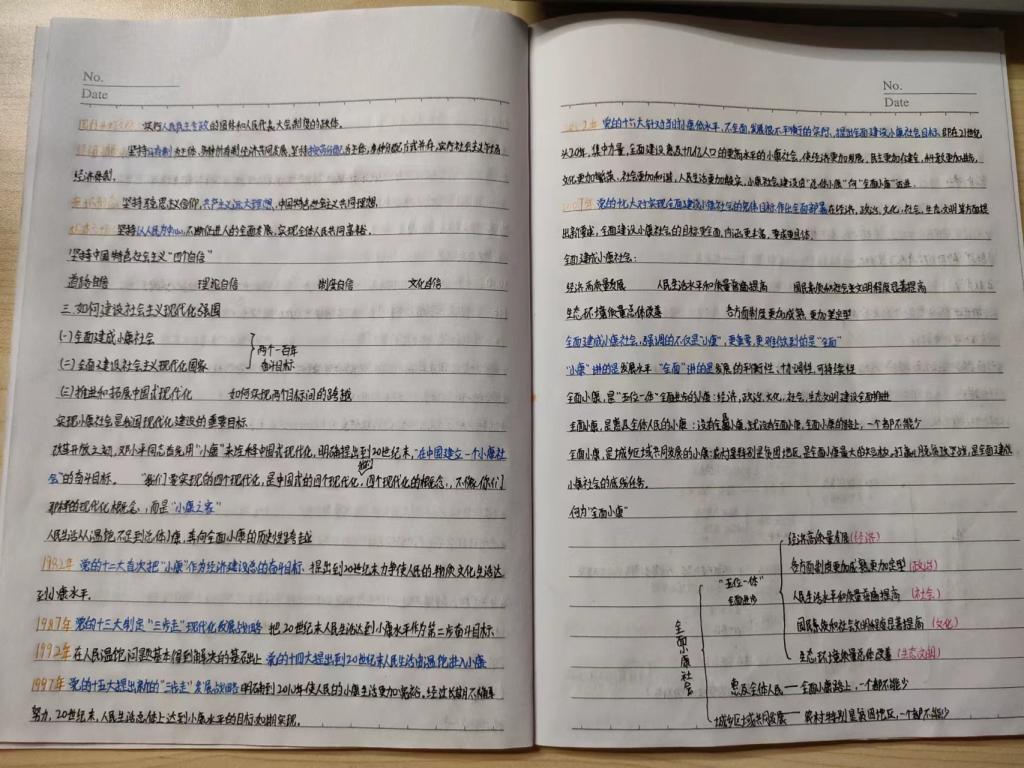 No.
Date
实行人民民主专政的国体和人民代表大会制度的政体。
坚持公有制为主体,多种所有制经济共同发展,坚持按劳分配为主体,多种分配方式并存,实行社会主义市场
经济体制。
坚持马克思主义信仰,共产主义远大理想,中国特色社会主义共同理想。
坚持以人民为中心,不断促进人的全面发展,实现全体人民共同富裕。
坚持中国特色社会主义“四个自信”
道路自信 理论自信 制度自信 文化自信
三.如何建设社会主义现代化强国
(一)全面建成小康社会
(二)全面建设社会主义现代化国家
两个一百年
奋斗目标
(三)推进和拓展中国式现代化 如何实现两个目标间的跨越
实现小康社会是我国现代化建设的重要目标
改革开放之初,邓小平同志首先用“小康”来诠释中国式现代化,明确提出到20世纪末,“在中国建立一个小康社
会”的奋斗目标。 “我们要实现的四个现代化,是中国式的四个现代化,四个现代化的概念,不像你们
那样的现代化概念,而是“小康之家”
人民生活从温饱不足到总体小康,奔向全面小康的历史性跨越
1982年 党的十二大首次把“小康”作为经济建设总的奋斗目标,提出到20世纪末力争使人民的物质文化生活达
到小康水平.
1987年 党的十三大制定“三步走”现代化发展战略 把20世纪末人民生活达到小康水平作为第二步奋斗目标
1992年 在人民温饱问题基本得到解决的基础上 党的十四大提出到20世纪末人民生活由温饱进入小康
1997年 党的十五大提出新的“三步走”发展战略 明确到2010年使人民的小康生活更加宽裕,经过长期不懈
努力,20世纪末,人民生活总体上达到小康水平的目标如期实现.
No.
Date
党的十六大针对当时小康低水平,不全面,发展很不平衡的实际,提出全面建设小康社会目标,即在21世纪
头20年,集中力量,全面建设惠及十几亿人口的更高水平的小康社会,使经济更加发展,民主更加健全,科教更加进步,
文化更加繁荣、社会更加和谐,人民生活更加殷实,小康社会建设由“总体小康”向“全面小康”迈进.
2007年 党的十七大对实现全面建设小康社会的宏伟目标作出全面部署在经济,政治,文化,社会,生态文明等方面提
出新要求,全面建设小康社会的目标更全面,内涵更丰富,要求更具体.
全面建成小康社会:
经济高质量发展 人民生活水平和质量普遍提高 国民素质和社会文明程度显著提高
生态环境质量总体改善 各方面制度更加成熟 更加定型
全面建成小康社会,强调的不仅是“小康”,更重要,更难做到的是“全面”
“小康”讲的是发展水平 “全面”讲的是发展的平衡性、协调性,可持续性
全面小康,是“五位一体”全面进步的小康:经济,政治,文化,社会,生态文明建设全面推进
全面小康,是惠及全体人民的小康:没有全民小康,就没有全面小康,全面小康的路上,一个都不能少
全面小康,是城乡区域共同发展的小康:农村特别是贫困地区,是全面小康最大的短板。打赢脱贫攻坚战,是全面建成
小康社会的底线任务.
何为“全面小康”
全面小康社会
“五位一体”
全面进步
经济高质量发展(经济)
各方面制度更加成熟更加定型(政治)
人民生活水平和质量普遍提高(社会)
国民素质和社会文明程度显著提高(文化)
生态环境质量总体改善(生态文明)
惠及全体人民——全面小康路上,一个都不能少
城乡区域共同发展——农村特别是贫困地区,一个都不能少